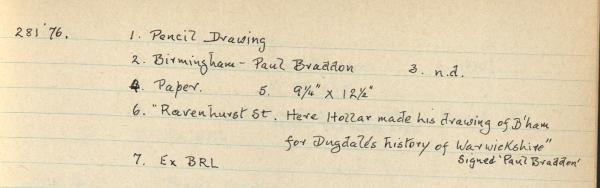 281'76. 1. Pencil Drawing
2. Birmingham - Paul Braddon 3. n.d.
4. Paper. 5. 9¼" x 12½"
6. "Ravenhurst St. Here Hollar made his drawing of B'ham
for Dugdale's history of Warwickshire"
Signed 'Paul Braddon'
7. Ex BRL